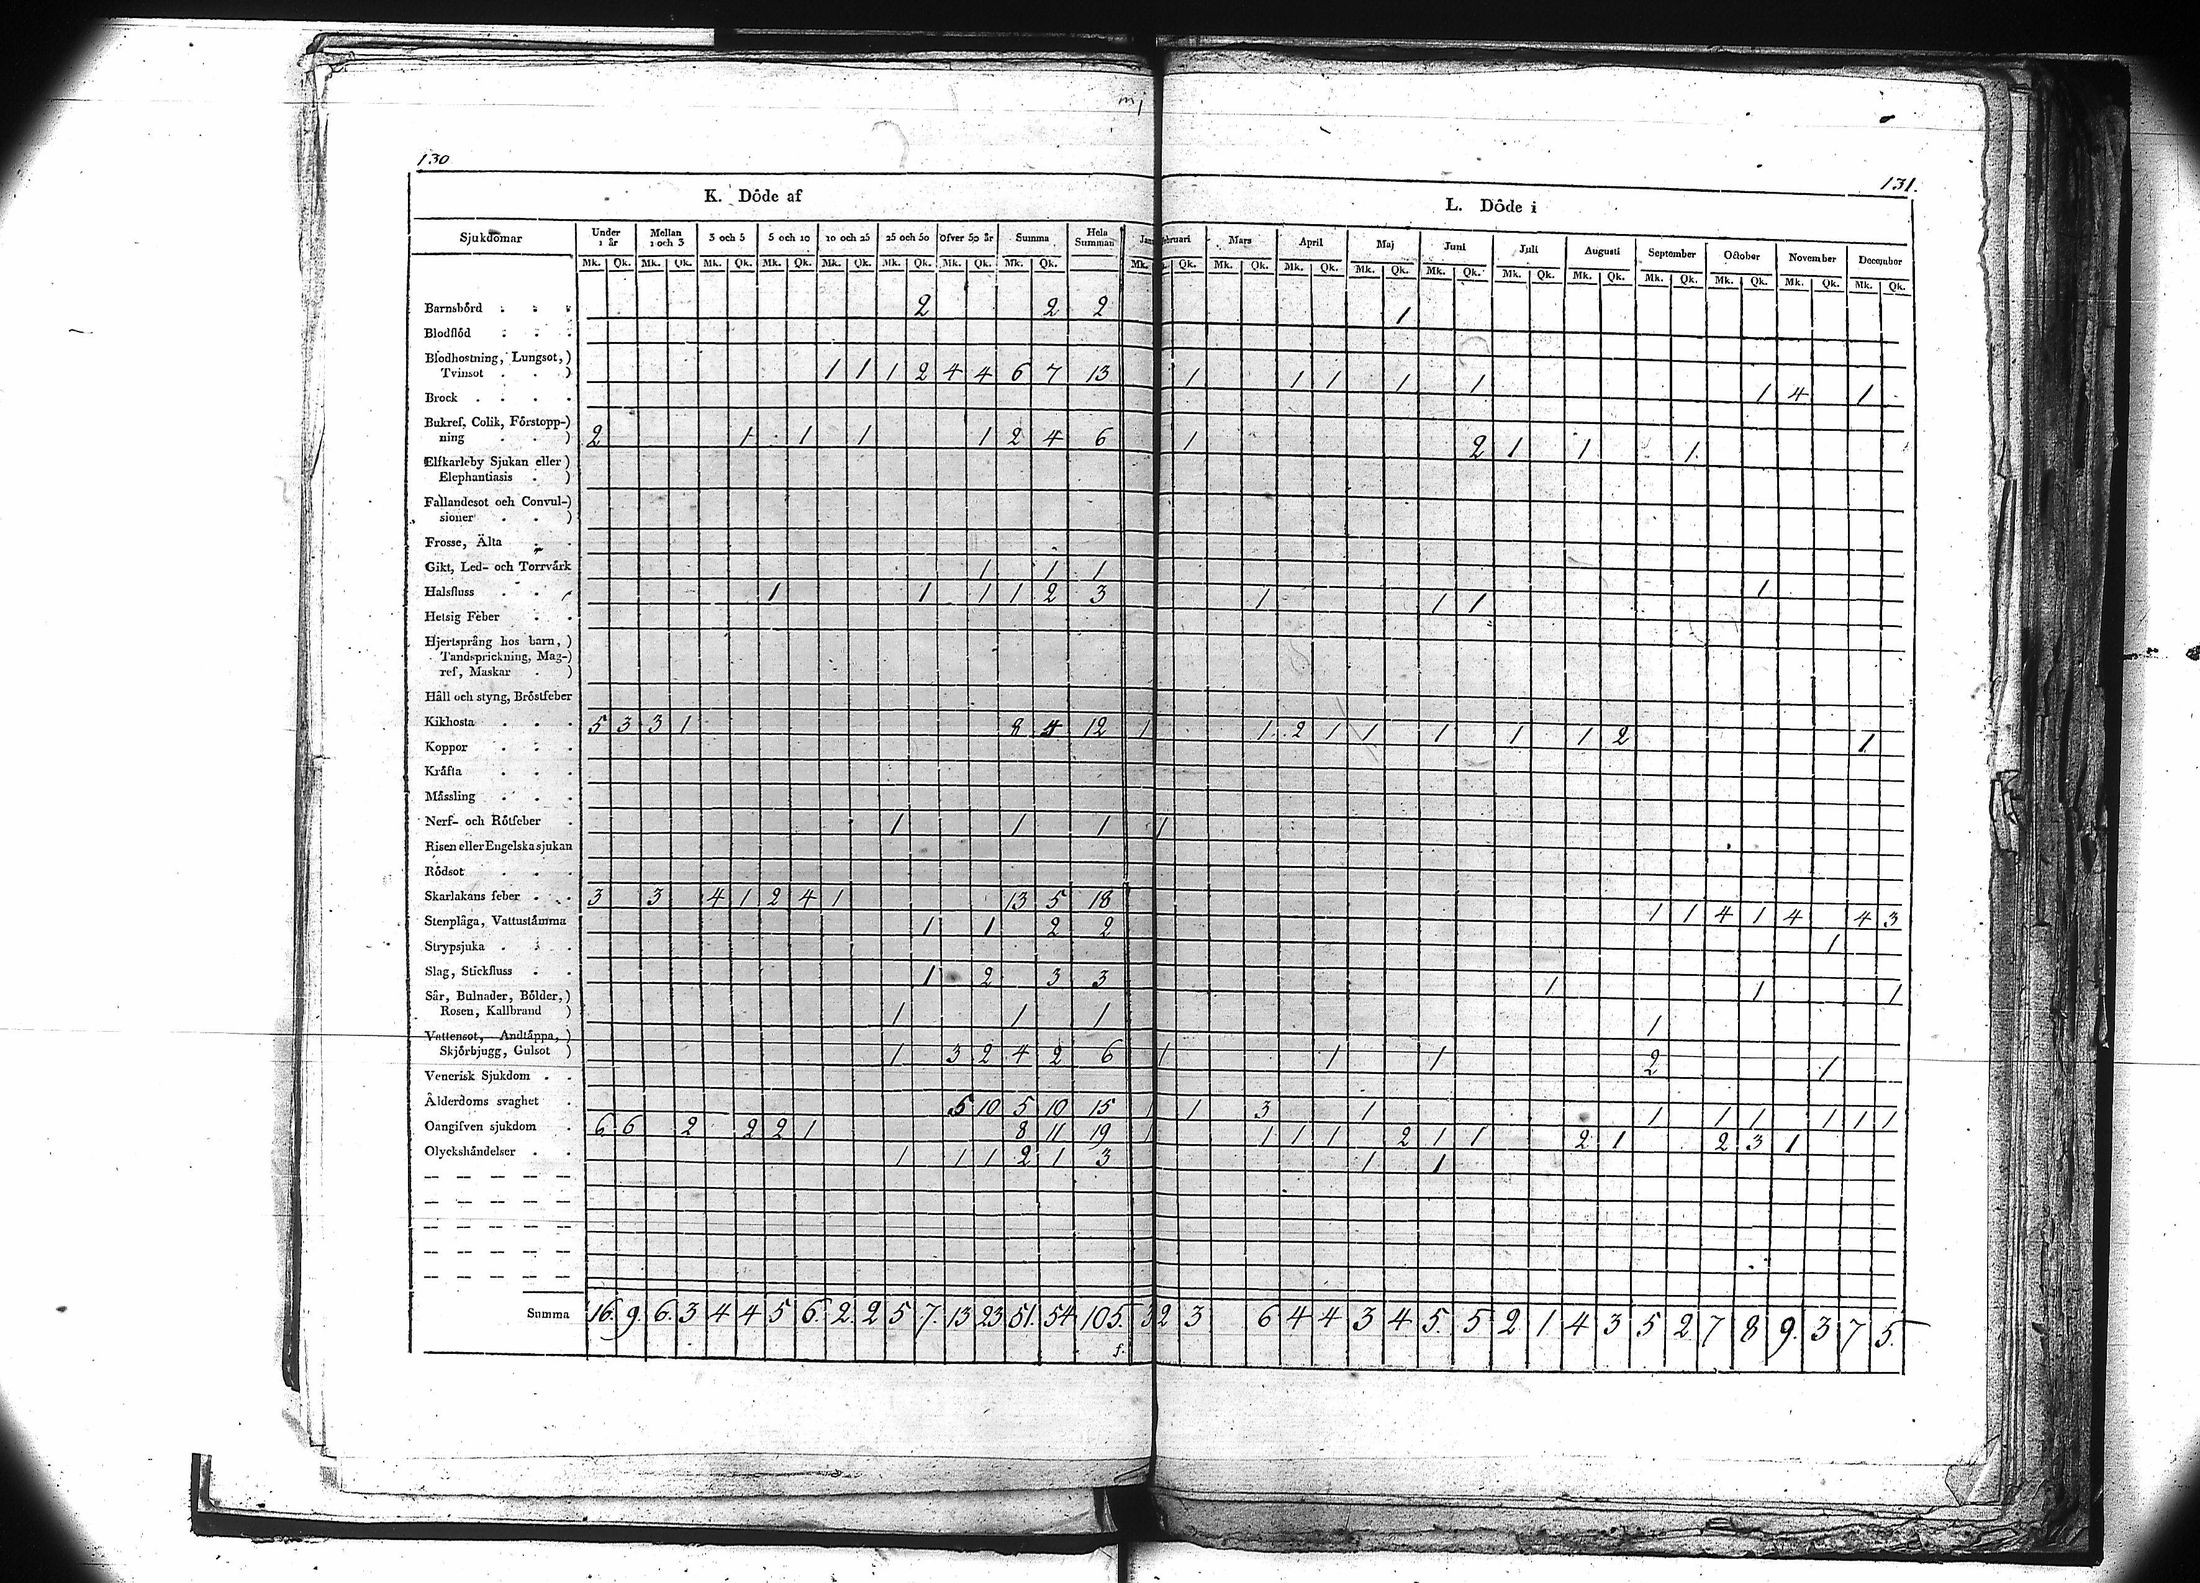 130
131.
K. Döde af
L. Döde i
Sjukdomar Under 1 år Mellan 1 och 3 3 och 5 5 och 10 10 och 25 25 och 50 öfver 50 år Summa Hela Summan Mars April Maj Juni Juli Augusti September October November December
Mk. Qk. Mk. Qk. Mk. Qk. Mk. Qk. Mk. Qk. Mk. Qk. Mk. Qk. Mk. Qk. Mk. Qk. Mk. Qk. Mk. Qk. Mk. Qk. Mk. Qk. Mk. Qk. Mk. Qk. Mk. Qk. Mk. Qk. Mk. Qk. Mk. Qk.
Barnsbörd 2 2 2 1
Blodflöd
Blodhostning, Lungsot,)
Tvinsot ) 1 1 1 2 4 4 6 7 13 1 1 1 1 1 1 4 1
Brock
Bukref, Colik, Förstopp-)
ning ) 2 1 1 1 1 2 4 6 1 2 1 1 1
Elfkarleby Sjukan eller)
Elephantiasis )
Fallandesot och Convul-)
sioner )
Frosse, Älta
Gikt, Led- och Torrvärk 1 1 1 1
Halsfluss 1 1 1 1 2 3 1 1 1
Hetsig Feber
Hjertsprång hos barn, )
Tandsprickning, Mag-)
ref, Maskar )
Håll och styng, Bröstfeber
Kikhosta 5 3 3 1 8 4 12 1 1 2 1 1 1 1 1 2 1
Koppor
Kräfta
Mässling
Nerf- och Rötfeber 1 1 1 1
Risen eller Engelska sjukan
Rödsot
Skarlakans feber 3 3 4 1 2 4 1 13 5 18 1 1 4 1 4 4 3
Stenplåga, Vattustämma 1 1 2 2 1
Strypsjuka
Slag, Stickfluss 1 2 3 3 1 1 1
Sår, Bulnader, Bölder,)
Rosen, Kallbrand ) 1 1 1 1
Vattensot, Andtäppa, )
Skjörbjugg, Gulsot ) 1 3 2 4 2 6 1 1 1 2 1
Venerisk Sjukdom
Ålderdoms svaghet 5 10 5 10 15 1 1 3 1 1 1 1 1 1 1
Oangifven sjukdom 6 6 2 2 2 1 8 11 19 1 1 1 1 2 1 1 2 1 2 3 1
Olyckshändelser 1 1 1 2 1 3 1 1
Summa 16. 9. 6. 3 4 4 5 6. 2. 2 5 7. 13 23 51. 54 105. 3 2 3 6 4 4 3 4 5. 5 2 1 4 3 5 2 7 8 9. 3 7 5.